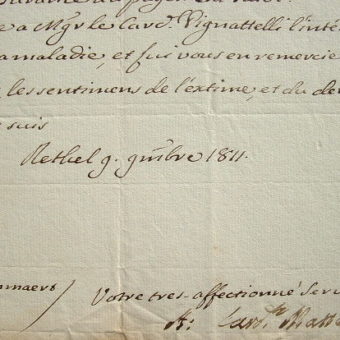 e a Mgr le Card. Vignattelli l'inté
maladie, et fui vous en remercie
les sentimens de l'extime, et du de
suis
Rethel 9. 9mbre 1811.
Votre tres-affectionné Ser
A: Card.